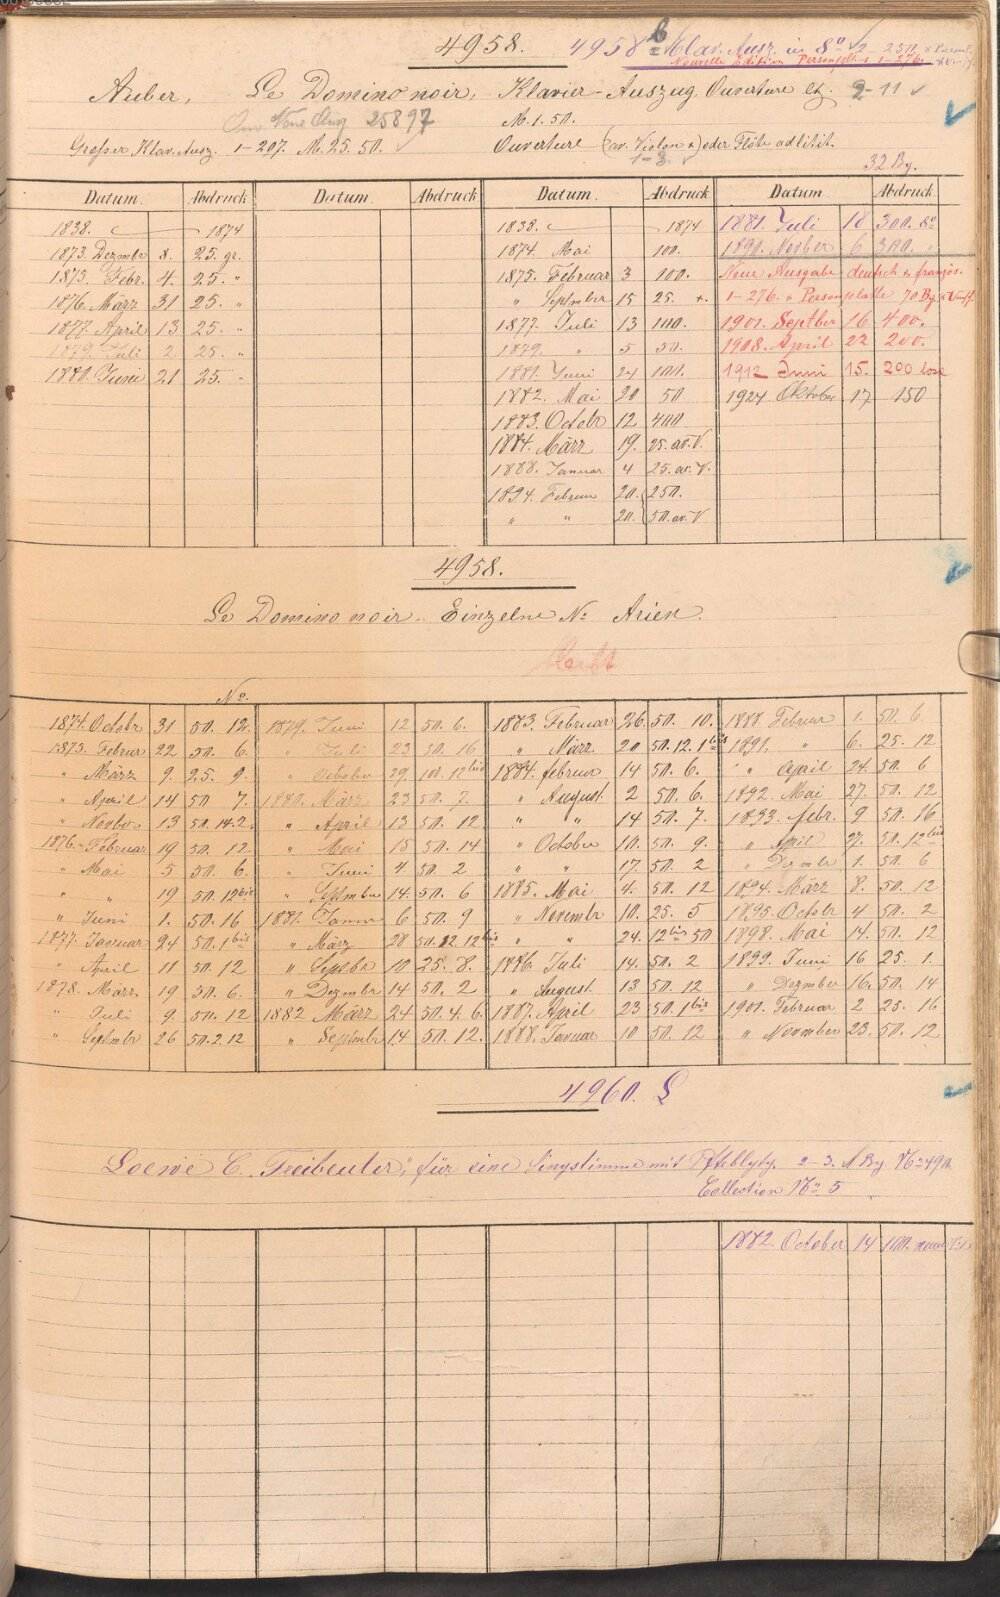 4958. 4958 b Klav. Ausz. in 8o 2-250.
Nouvelle Edition Personplatte 1-276.
Auber, Le Domino noir, Klavier-Auszug Ouverture etc. 2-11
Neue Ausg 25897 M. 1. 50.
Großer Klav. Ausz. 1-207. M. 25. 50. Ouverture (av. Violon) oder Flöte ad libit.
1-3.
32 Bg.
Datum. Abdruck Datum. Abdruck. Datum. Abdruck Datum. Abdruck.
1838. 1874 1838. 1874 1881. Juli 18 300. 8o
1873. Dezmbr 8. 25. gr. 1874 Mai 100. 1890. Novber 6 300. "
1875. Febr. 4. 25. " 1875. Februar 3 100. Neue Ausgabe deutsch & französ.
1876. März 31 25. " " Septmber 15 25. 1-276. & Personplatte 70 Bg.
1877. April 13 25. " 1877. Juli 13 100. 1901. Septber 16. 400.
1879. Juli 2 25. " 1879. " 5 50. 1908. April 22 200.
1880. Juni 21 25. " 1881. Juni 24 100. 1912 Juni 15. 200 lose
1882. Mai 20 50 1924 Oktober 17 150
1883. Octobr 12 400
1884. März 19. 25. av. V.
1888. Januar 4 25. av. V.
1894. Februar 20. 250.
" " 20. 50. av. V
4958.
Le Domino noir. Einzelne No Arien.
No.
1874. Octobr 31 50. 12. 1879. Juni 12 50. 6. 1883. Februar 26. 50. 10. 1888. Februar 1. 50. 6.
1875. Februar 22 50. 6. " Juli 23 50. 16 " März 20 50. 12. 1 bis 1891. " 6. 25. 12
" März 9. 25. 9. " October 29. 100. 12 bis 1884. februar 14 50. 6. " April 24. 50. 6
" April 14 50 7. 1880. März 23 50. 7. " August 2 50. 6. 1892. Mai 27. 50. 12
" Novbr 13 50. 14. 2. " April 13 50. 12 " " 14 50. 7. 1893. febr. 9 50. 16.
1876. Februar 19 50. 12 " Mai 15 50. 14 " October 10. 50. 9. " April 27. 50. 12 bis
" Mai 5 50. 6. " Juni 4 50. 2 " " 17. 50. 2 " Dezmbr 1. 50. 6
" " 19 50. 12 bis " Septmber 14. 50. 6 1885. Mai 4. 50. 12 1894. März 8. 50. 12
" Juni 1. 50. 16 1881. Januar 6 50. 9 " Novembr 10. 25. 5 1895. Octobr 4 50. 2
1877. Januar 24 50. 1 bis " März 28 50. 12 12 bis " " 24. 12 bis 50 1898. Mai 14. 50. 12
" April 11 50. 12 " Septbr 10 25. 8. 1886. Juli 14. 50. 2 1899. Juni 16 25. 1.
1878. März. 19 50. 6. " Dezmbr 14 50. 2 " August. 13 50. 12 " Dezmber 16. 50. 14
" Juli 9. 50. 12 1882 März 24 50. 4. 6. 1887. April 23 50. 1 bis 1901. Februar 2 25. 16
" Septmbr 26 50. 2. 12 " Septmbr 14 50. 12. 1888. Januar 10 50. 12 " November 23. 50. 12
4960. L
Loewe C. "Freibeuter", für eine Singstimme mit Pftebgltg. 2-3. No 490
Collection No 5
1882. October 14 100.